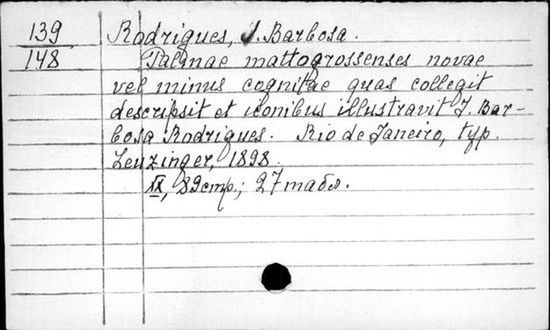 139
148
Rodrigues, J. Barbosa.
Palmae mattogrossenses novae
vel minus cognitae quas collegit
descripsit et iconibus illustravit J. Bar-
bosa Rodrigues. Rio de Janeiro, typ.
Leuzinger, 1898.
XX, 89 стр.; 27 табл.